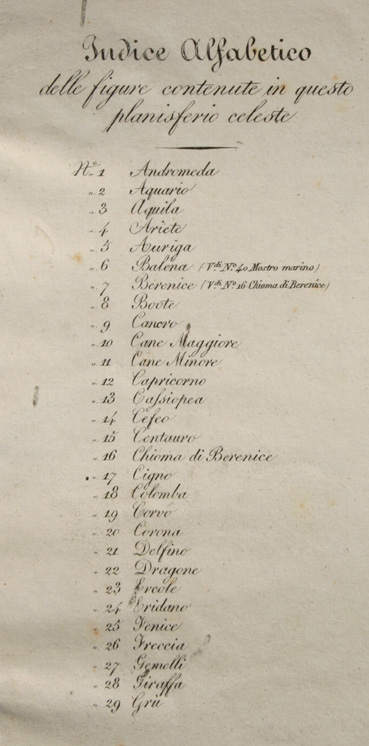 Indice Alfabetico
delle figure contenute in questo
planisferio celeste
N.º 1 Andromeda
„ 2 Aquario
„ 3 Aquila
„ 4 Ariete
„ 5 Auriga
„ 6 Balena (V.di N.º 40 Mostro marino)
„ 7 Berenice (V.di N.º 16 Chioma di Berenice)
„ 8 Boote
„ 9 Cancro
„ 10 Cane Maggiore
„ 11 Cane Minore
„ 12 Capricorno
„ 13 Cassiopea
„ 14 Cefeo
„ 15 Centauro
„ 16 Chioma di Berenice
„ 17 Cigno
„ 18 Colomba
„ 19 Corvo
„ 20 Corona
„ 21 Delfino
„ 22 Dragone
„ 23 Ercole
„ 24 Eridano
„ 25 Fenice
„ 26 Freccia
„ 27 Gemelli
„ 28 Giraffa
„ 29 Grù